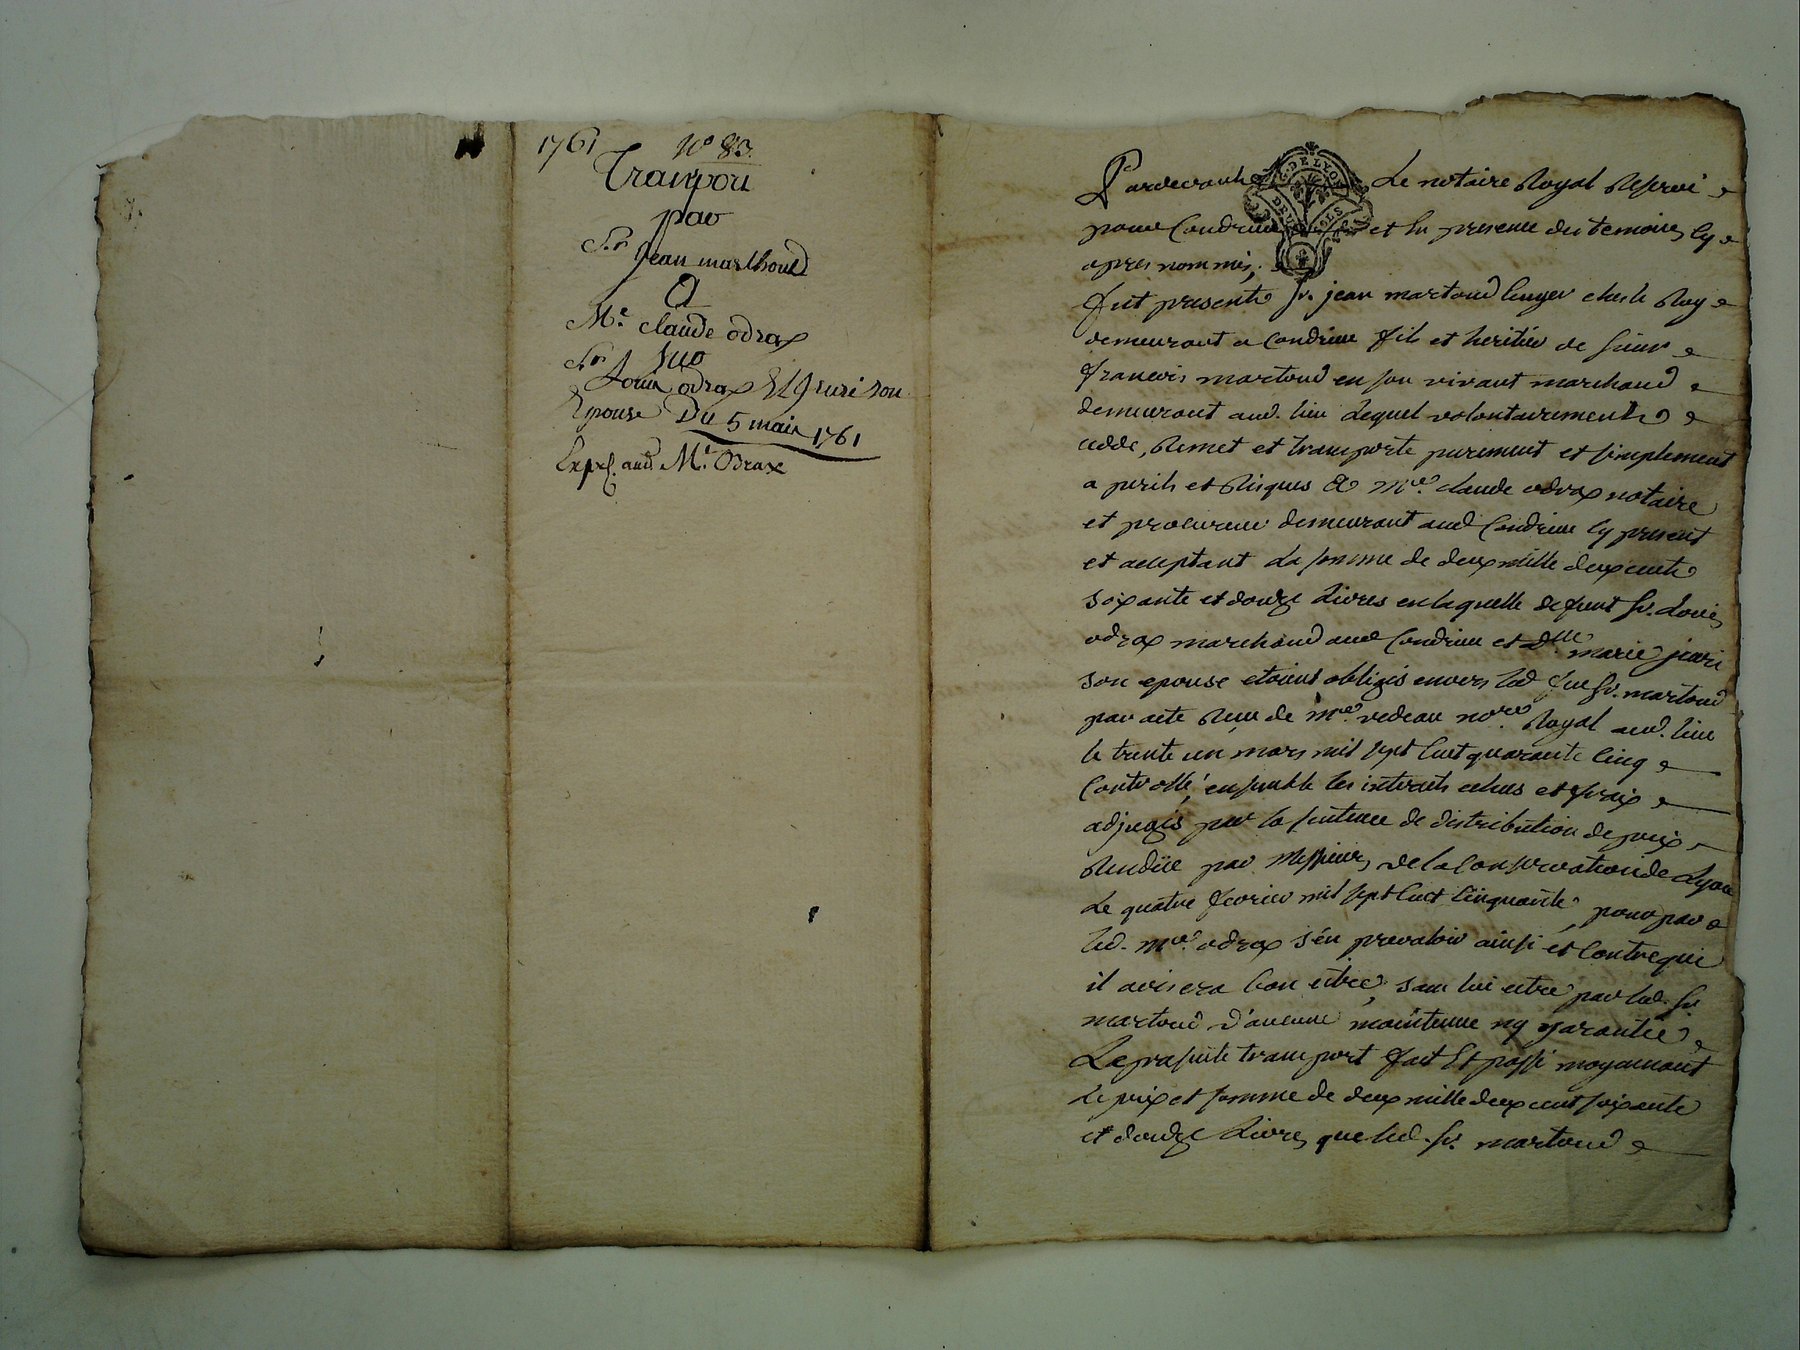 1761 N° 83.
Transport
par
Sr.
Jean marthoud
A
Me. claude odrax
sur
Sr. Louis odrax Et Jurié son
Epouse Du 5 mais 1761
Exp. aud. Me. Odrax
G. DE LYON
DEUX SOLS
Pardevant Le notaire Royal Reservé
pour Condrieu et En presence des temoins cy
apres nommés,
fut presente sr. jean martoud linger ches le Roy
demeurant a Condrieu fils et heritier de sieur
francois martoud en son vivant marchand
demeurant aud. lieu Lequel volontairement
cedde, Remet et transporte purement et simplement
a perils et Risques A Mre. claude odrax notaire
et procureur demeurant aud Condrieu cy present
et acceptant La somme de deux mille deux cents
soixante et douze Livres en laquelle defunt sr. Louis
odrax marchand aud Condrieu et dlle. marie jurié
son epouse etoient obligés envers led feu sr. martoud
par acte Reçu de Mre. redeau nore. Royal aud. lieu
le trente un mars mil sept Cent quarante Cinq
Controllé, ensemble les interets echus et fraix
adjugés par la sentence de distribution de prix
Rendüe par Messieurs de la Conservation de Lyon
Le quatre fevrier mil sept Cent Cinquante, pour par
led. Mre. odrax s'en prevaloir ainsi et Contre qui
il avisera bon etre, sans lui etre par led. sr.
martoud d'aucune maintenue ny garantie
Le present transport fait Et passé moyennant
Le prix et somme de deux mille deux cent soixante
et douze Livres que led. sr. martoud